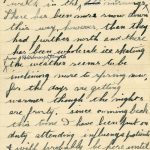 walk in the, and evenings,
There has been more snow down
this way, however than they
had further north and there
has been wholesale ice skating
the weather seems to be
inclining more to spring now,
for the days are getting
warmer though the nights
are frosty. Since coming back
I have been put on
duty attending influenza patients
I will probably be here until